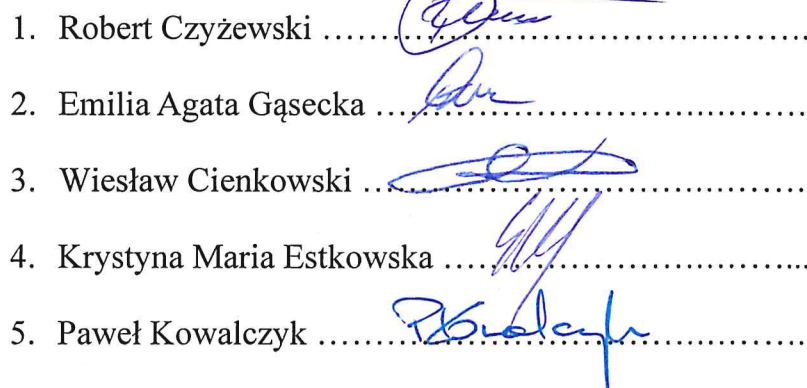 1. Robert Czyżewski ................................................
2. Emilia Agata Gąsecka ..........................................
3. Wiesław Cienkowski ...........................................
4. Krystyna Maria Estkowska ...................................
5. Paweł Kowalczyk ................................................ P. Kowalczyk